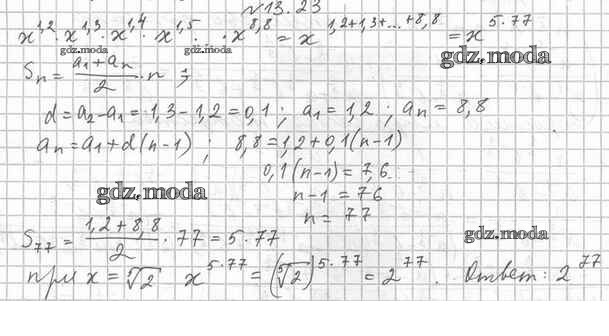 N 13.23
x^1,2 · x^1,3 · x^1,4 · x^1,5 · . · x^8,8 = x^1,2+1,3+...+8,8 = x^5·77
gdz.moda gdz.moda gdz.moda
Sn = (a1 + an)/2 · n ;
d = a2 - a1 = 1,3 - 1,2 = 0,1 ; a1 = 1,2 ; an = 8,8
an = a1 + d(n-1) ; 8,8 = 1,2 + 0,1(n-1)
0,1(n-1) = 7,6
gdz.moda n-1 = 76
n = 77
S77 = (1,2 + 8,8)/2 · 77 = 5 · 77 gdz.moda
при x = ⁵√2 x^5·77 = (⁵√2)^5·77 = 2^77. Ответ: 2^77